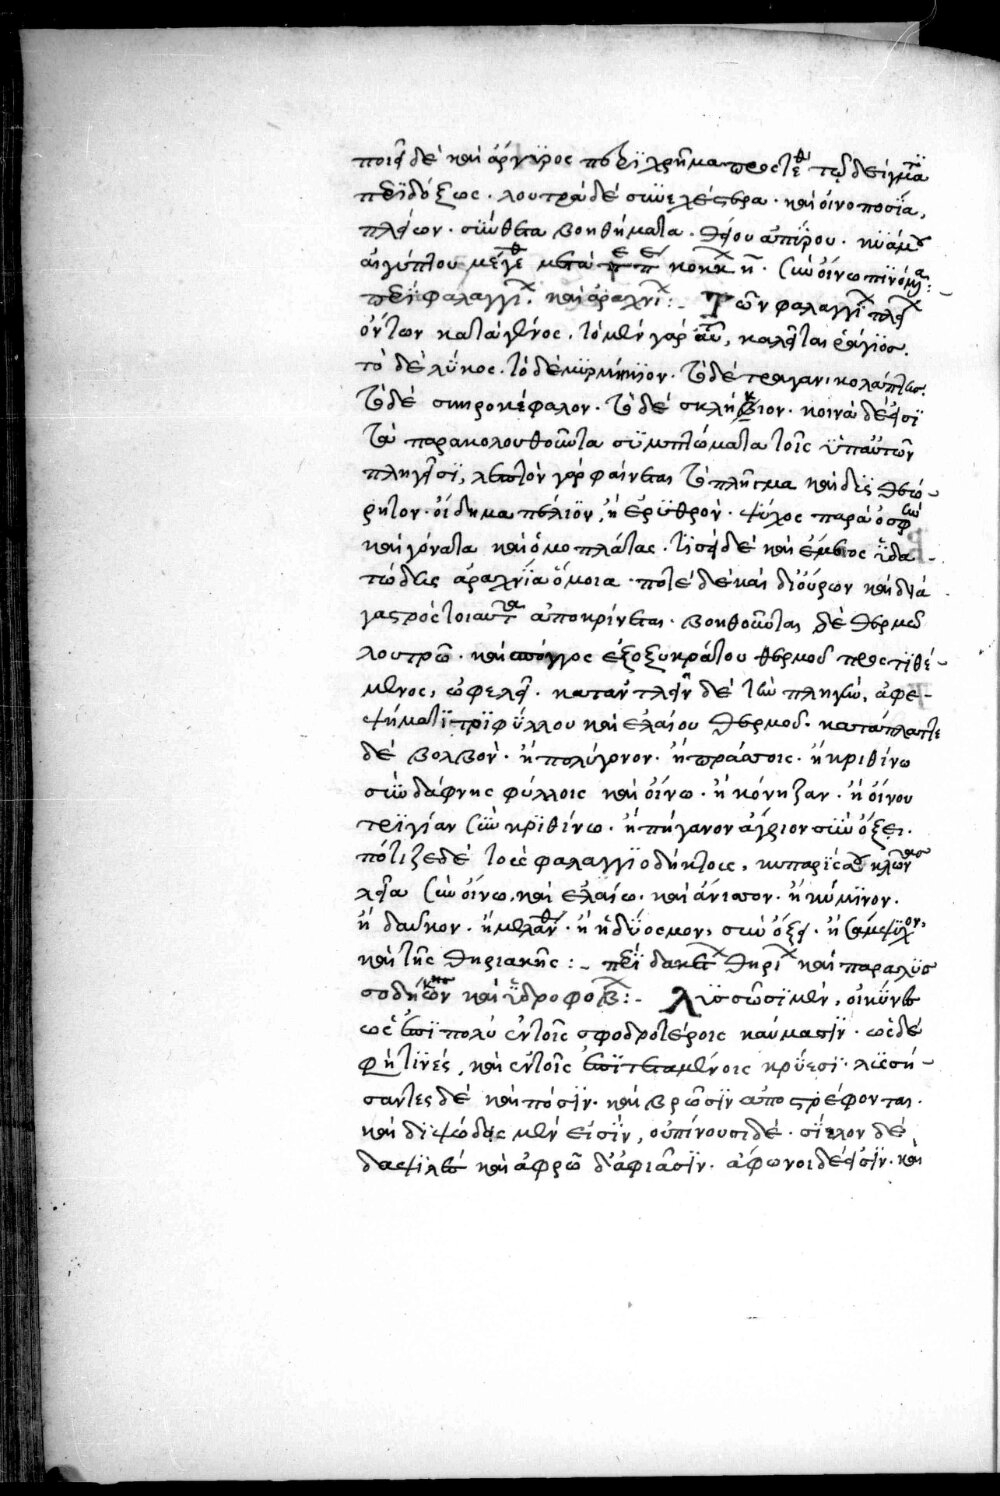 ποιεῖ δὲ καὶ ἄργυρος περὶ χρῆμα προστεθ τῷ δείγματι
περιδόξως. λουτρὰ δὲ συνεχέστερα. καὶ οἰνοποσία,
πλείων. σύνθετα βοηθήματα. θείου ἀπύρου. κυάμου
αἰγύπτου μεγεθ μετὰ κοκκ η. σὺν οἴνω πινόμενα:
περὶ φαλαγγι. καὶ ἀραχνι: Τῶν φαλαγγι πλει
όντων κατὰ γένος. τὸ μὲν γὰρ αὐ, καλεῖται ῥάγιος.
τὸ δὲ λύκος. τὸ δὲ μυρμήκιον. τὸ δὲ κολάπτης.
τὸ δὲ σκηροκέφαλον. τὸ δὲ σκληκιον. κοινὰ δέ εἰσι
τὰ παρακολουθοῦντα συμπτώματα τοῖς ὑπαὐτῶν
πληγεῖσι, λεπτὸν γὰρ φαίνεται τὸ πλῆγμα καὶ δυσθεώ-
ρητον. οἴδημα πέλιον, ἢ ἐρυθρόν. ψύχος παρὰ ὀσφὺν
καὶ γόνατα καὶ ὁμοπλάτας. τισὶ δὲ καὶ ἔμετος ὑδα-
τώδης ἀράχνια ὅμοια. ποτὲ δὲ καὶ δι οὔρων καὶ διὰ
γαστρὸς τοιαῦτα ἀποκρίνεται. βοηθοῦνται δὲ θερμῶ
λουτρῶ. καὶ σπόγγος ἐξ ὀξυκράτου θερμοῦ προστιθέ-
μενος, ὠφελεῖ. καταντλεῖν δὲ τὴν πληγὴν, ἀφε-
ψήματι τριφύλλου καὶ ἐλαίου θερμοῦ. κατάπλαττε
δὲ βολβὸν. ἢ πολύγονον. ἢ πράσοις. ἢ κριθίνω
σὺν δάφνης φύλλοις καὶ οἴνω. ἢ κόνηζαν. ἢ οἴνου
τρυγίαν σὺν κριθίνω. ἢ πήγανον ἄγριον σὺν ὄξει.
πότιζε δὲ τοὺς φαλαγγιοδήκτους, κυπαρίσσου κλῶνας
λεῖα σὺν οἴνω, καὶ ἐλαίω. καὶ ἄνισον. ἢ κύμινον.
ἢ δαῦκον. ἢ μελανθ. ἢ ἡδύοσμον, σὺν ὄξει. ἢ σάμψυχον,
καὶ τῆς θηριακῆς: περὶ δακετ θηρι καὶ παραλυσ
σοδήκτων καὶ ὑδροφοβ: Λυσσῶσι μὲν, οἱ κύνες
ὡς ἐπὶ πολὺ ἐν τοῖς σφοδροτέροις καύμασιν. ὡς δέ
φησί τινές, καὶ ἐν τοῖς ἐπιτεταμένοις κρύεσι. λυσσή-
σαντες δὲ καὶ πόσιν. καὶ βρῶσιν ἀποστρέφονται.
καὶ διψώδεις μὲν εἰσὶν, οὐ πίνουσι δὲ. σίελον δὲ
δαψιλεῖ καὶ ἀφρῶ δ' ἀφιᾶσιν. ἄφωνοι δέ εἰσιν. καὶ